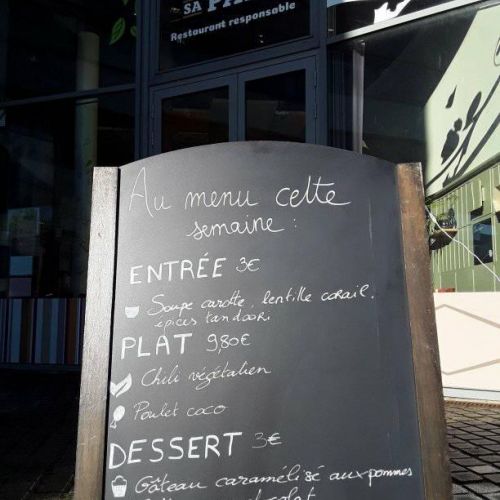 SA
Restaurant responsable
Au menu cette
semaine :
ENTRÉE 3€
Soupe carotte, lentille corail,
épices tandoori
PLAT 9,80€
Chili végétalien
Poulet coco
DESSERT 3€
Gâteau caramélisé aux pommes